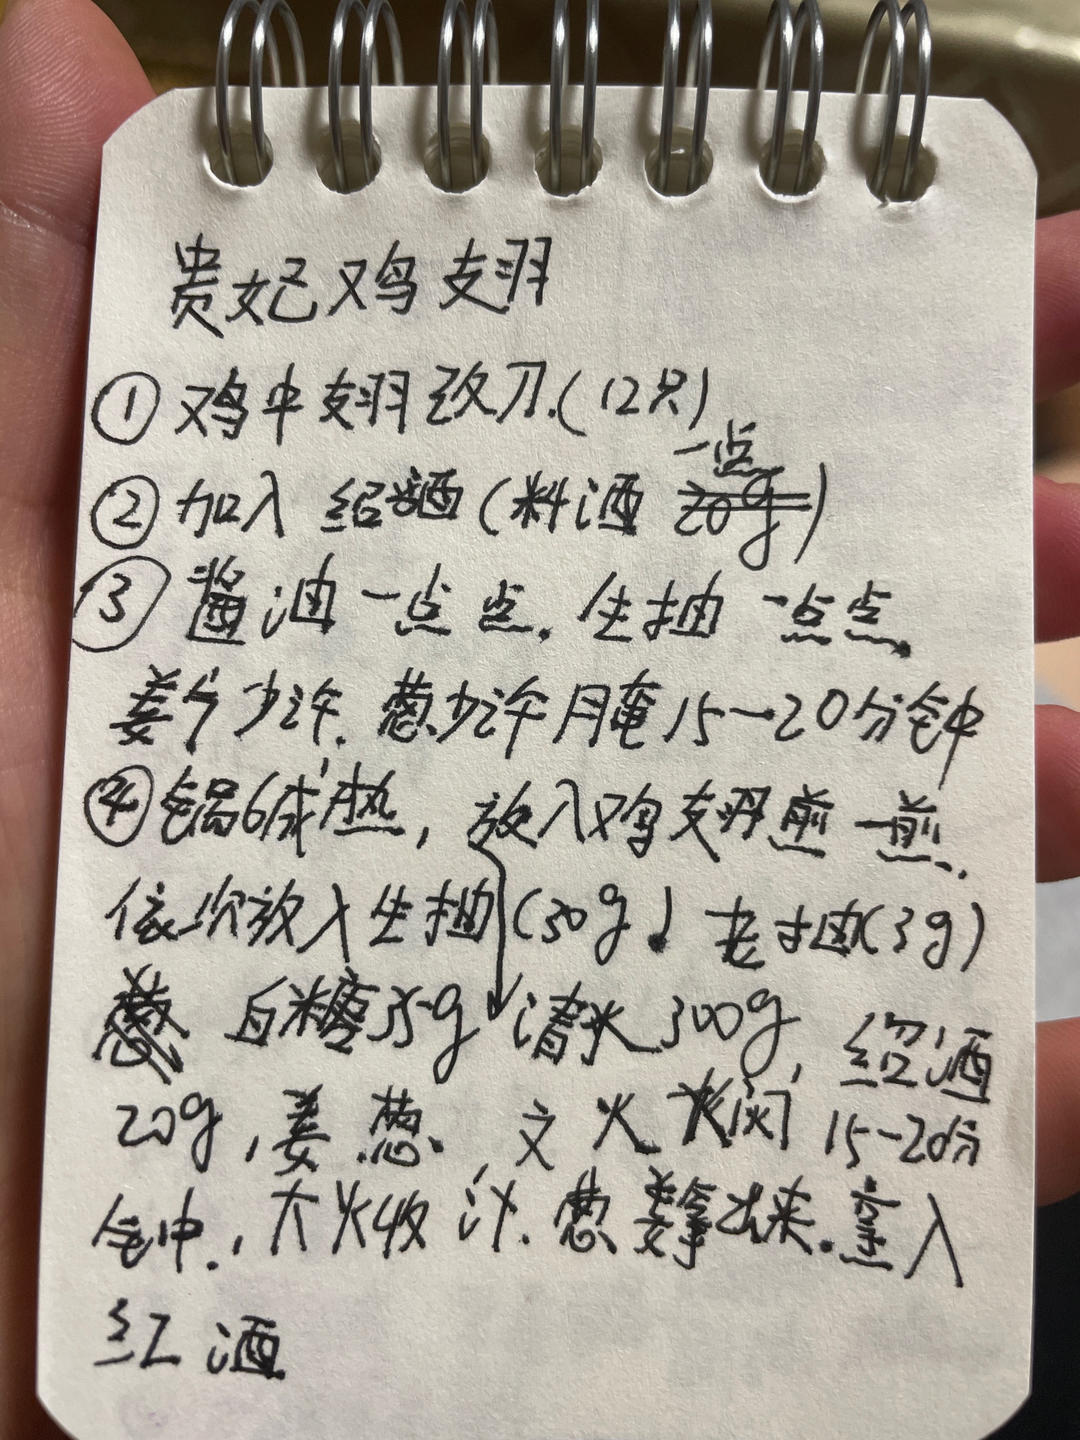 贵妃鸡翅
① 鸡中翅改刀.(12只)
② 加入 绍酒(料酒 一点 20g)
③ 酱油一点点. 生抽一点点.
姜片少许. 葱少许 腌15-20分钟
④ 锅6成热, 放入鸡翅煎一煎.
依次放入生抽(30g) 老抽(3g)
白糖35g 清水300g, 绍酒
20g, 姜.葱. 文火 焖 15-20分
钟., 大火收汁. 葱姜拿出来. 烹入
红酒